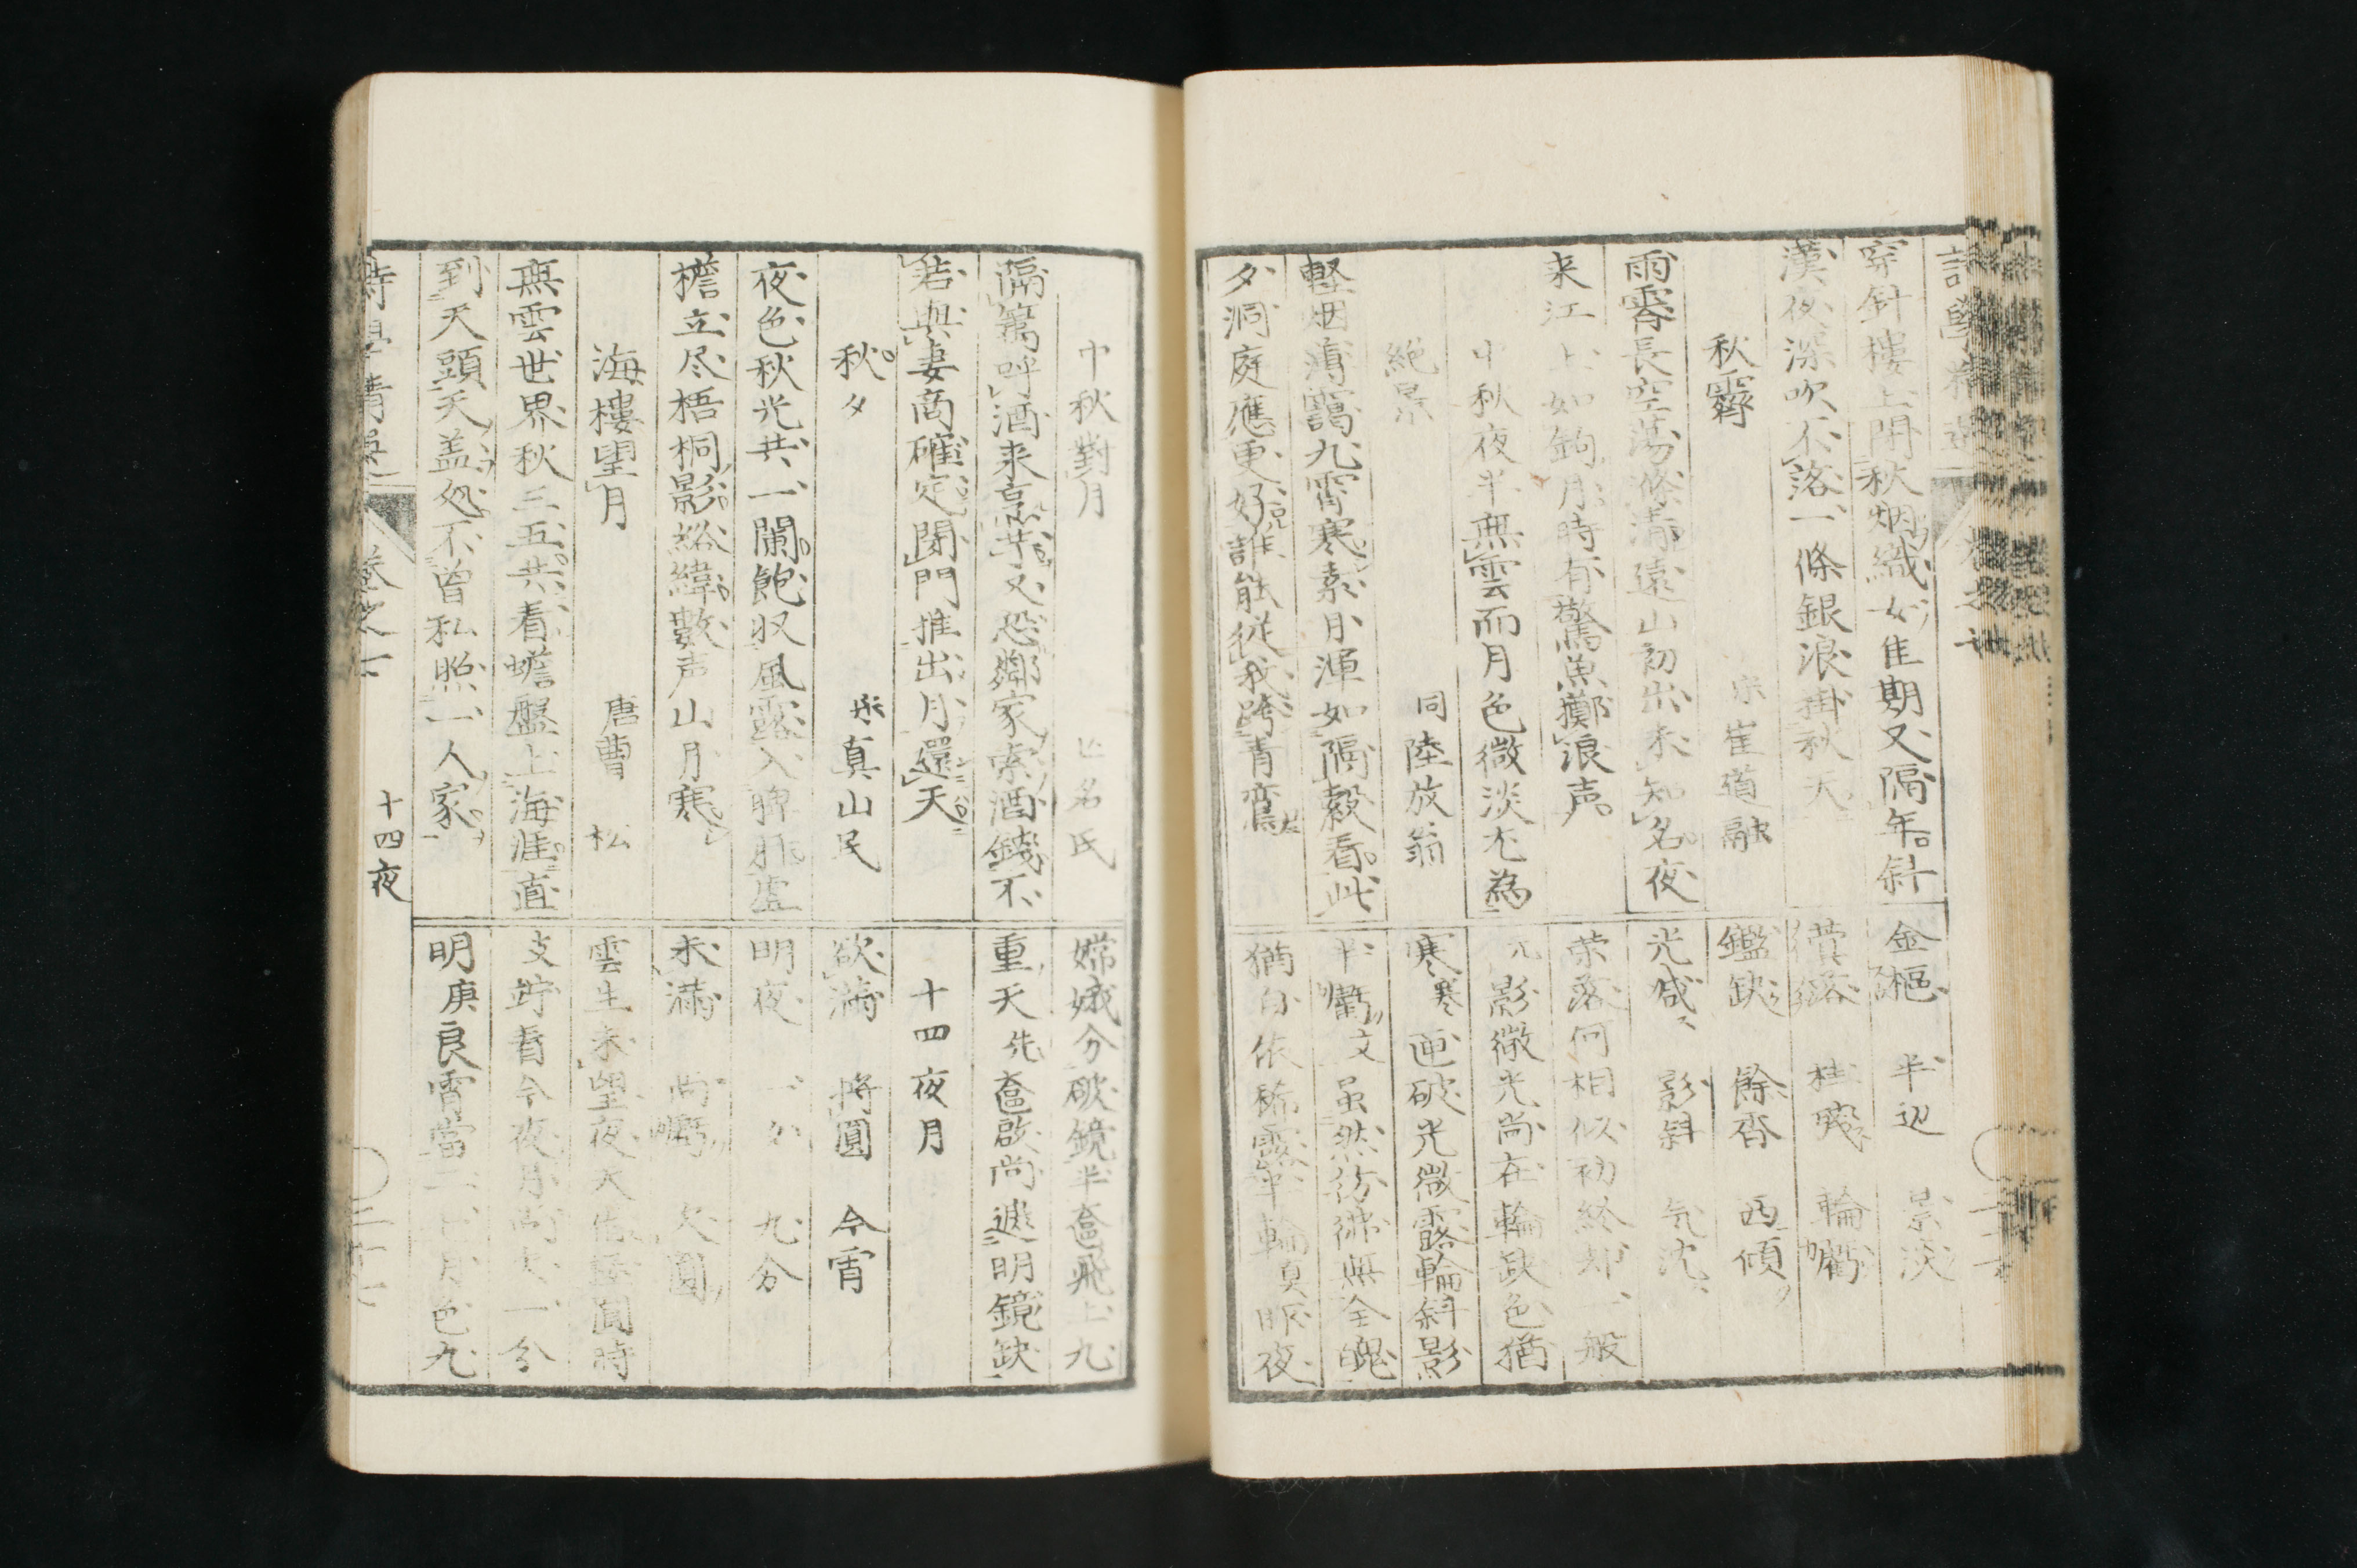 穿針樓上閉秋烟織女佳期又隔年斜
漢夜深吹不落一條銀浪掛秋天
秋霽
宋 崔道融
雨霽長空蕩滌清遠山初出未知名夜
来江上如鉤月時有驚魚擲浪声
中秋夜半無雲而月色微淡尤為
絶景
同陸放翁
軽烟薄靄九霄寒素月渾如隔縠看此
夕洞庭應更好誰能從我跨青鸞
金樞 半辺 景淡
蓂落 桂残 輪虧
鑑缺 餘香 西傾
光減 影斜 气沈
荣落何相似初終却一般
影微光尚在輪缺色猶
寒 寒匣破光微露輪斜影
半虧 文虽然彷彿無全魄
猶自依稀露半輪 夜
中秋對月
亡名氏
隔篱呼酒来烹芋又恐鄰家索酒錢不
若與妻商確定閉門推出月還天
秋夕
宋真山民
夜色秋光共一闌飽収風露入脾肝虛
檐立尽梧桐影絡緯數声山月寒
海樓望月
唐曹 松
無雲世界秋三五共看蟾盤上海涯直
到天頭天盖処不曾私照一人家
嫦娥分破鏡半奩飛上九
重天 先奩啟尚遲明鏡缺
十四夜月
欲満 將圓 今宵
明夜 一分 九分
未滿 尚虧 欠圓
雲生未望夜天 圓時
支竚看今夜月尚欠一分
明 庚良宵當二七月色九
卷之一
十四夜